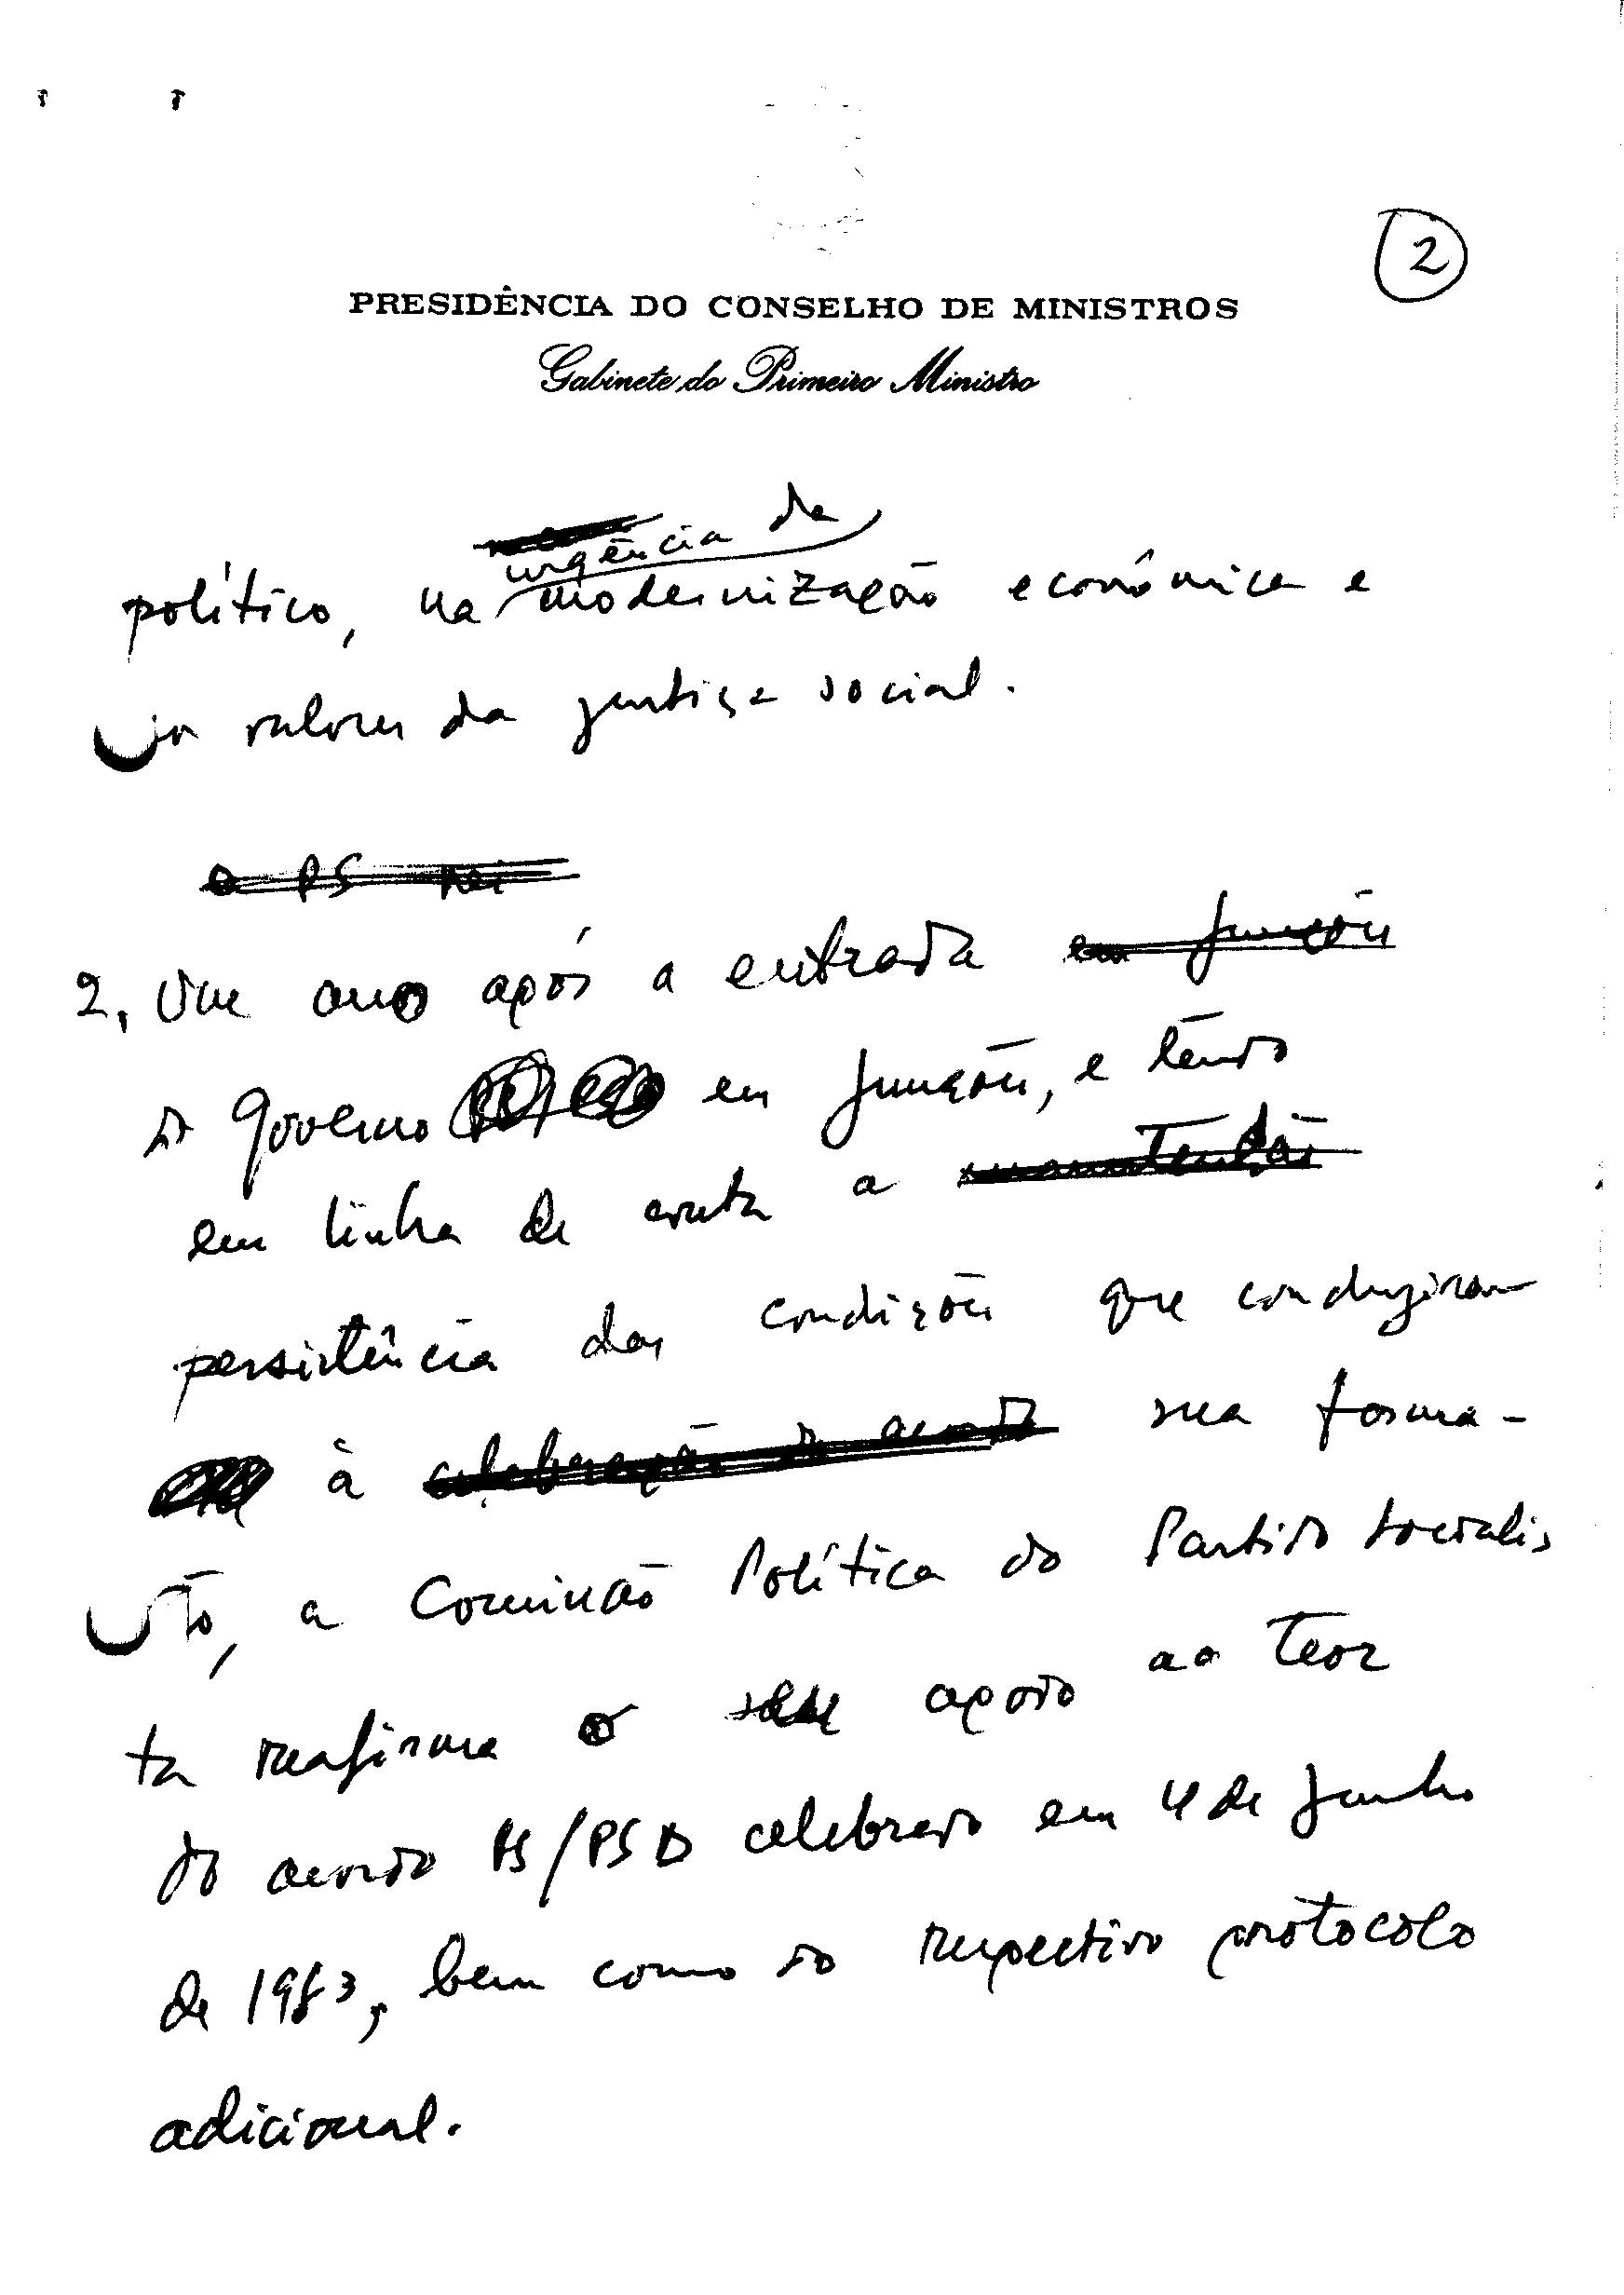 2
PRESIDÊNCIA DO CONSELHO DE MINISTROS
Gabinete do Primeiro Ministro
urgência da
político, na modernização económica e
valores da justiça social.
o PS
2. Um ano após a entrada em funções
do Governo em funções, e tendo
em linha de conta a manutenção
persistência das condições que conduziram
à celebração do acordo sua forma-
ção, a Comissão Política do Partido Socialis
ta reafirma o seu apoio ao teor
do acordo PS/PSD celebrado em 4 de Junho
de 1983, bem como do respectivo protocolo
adicional.